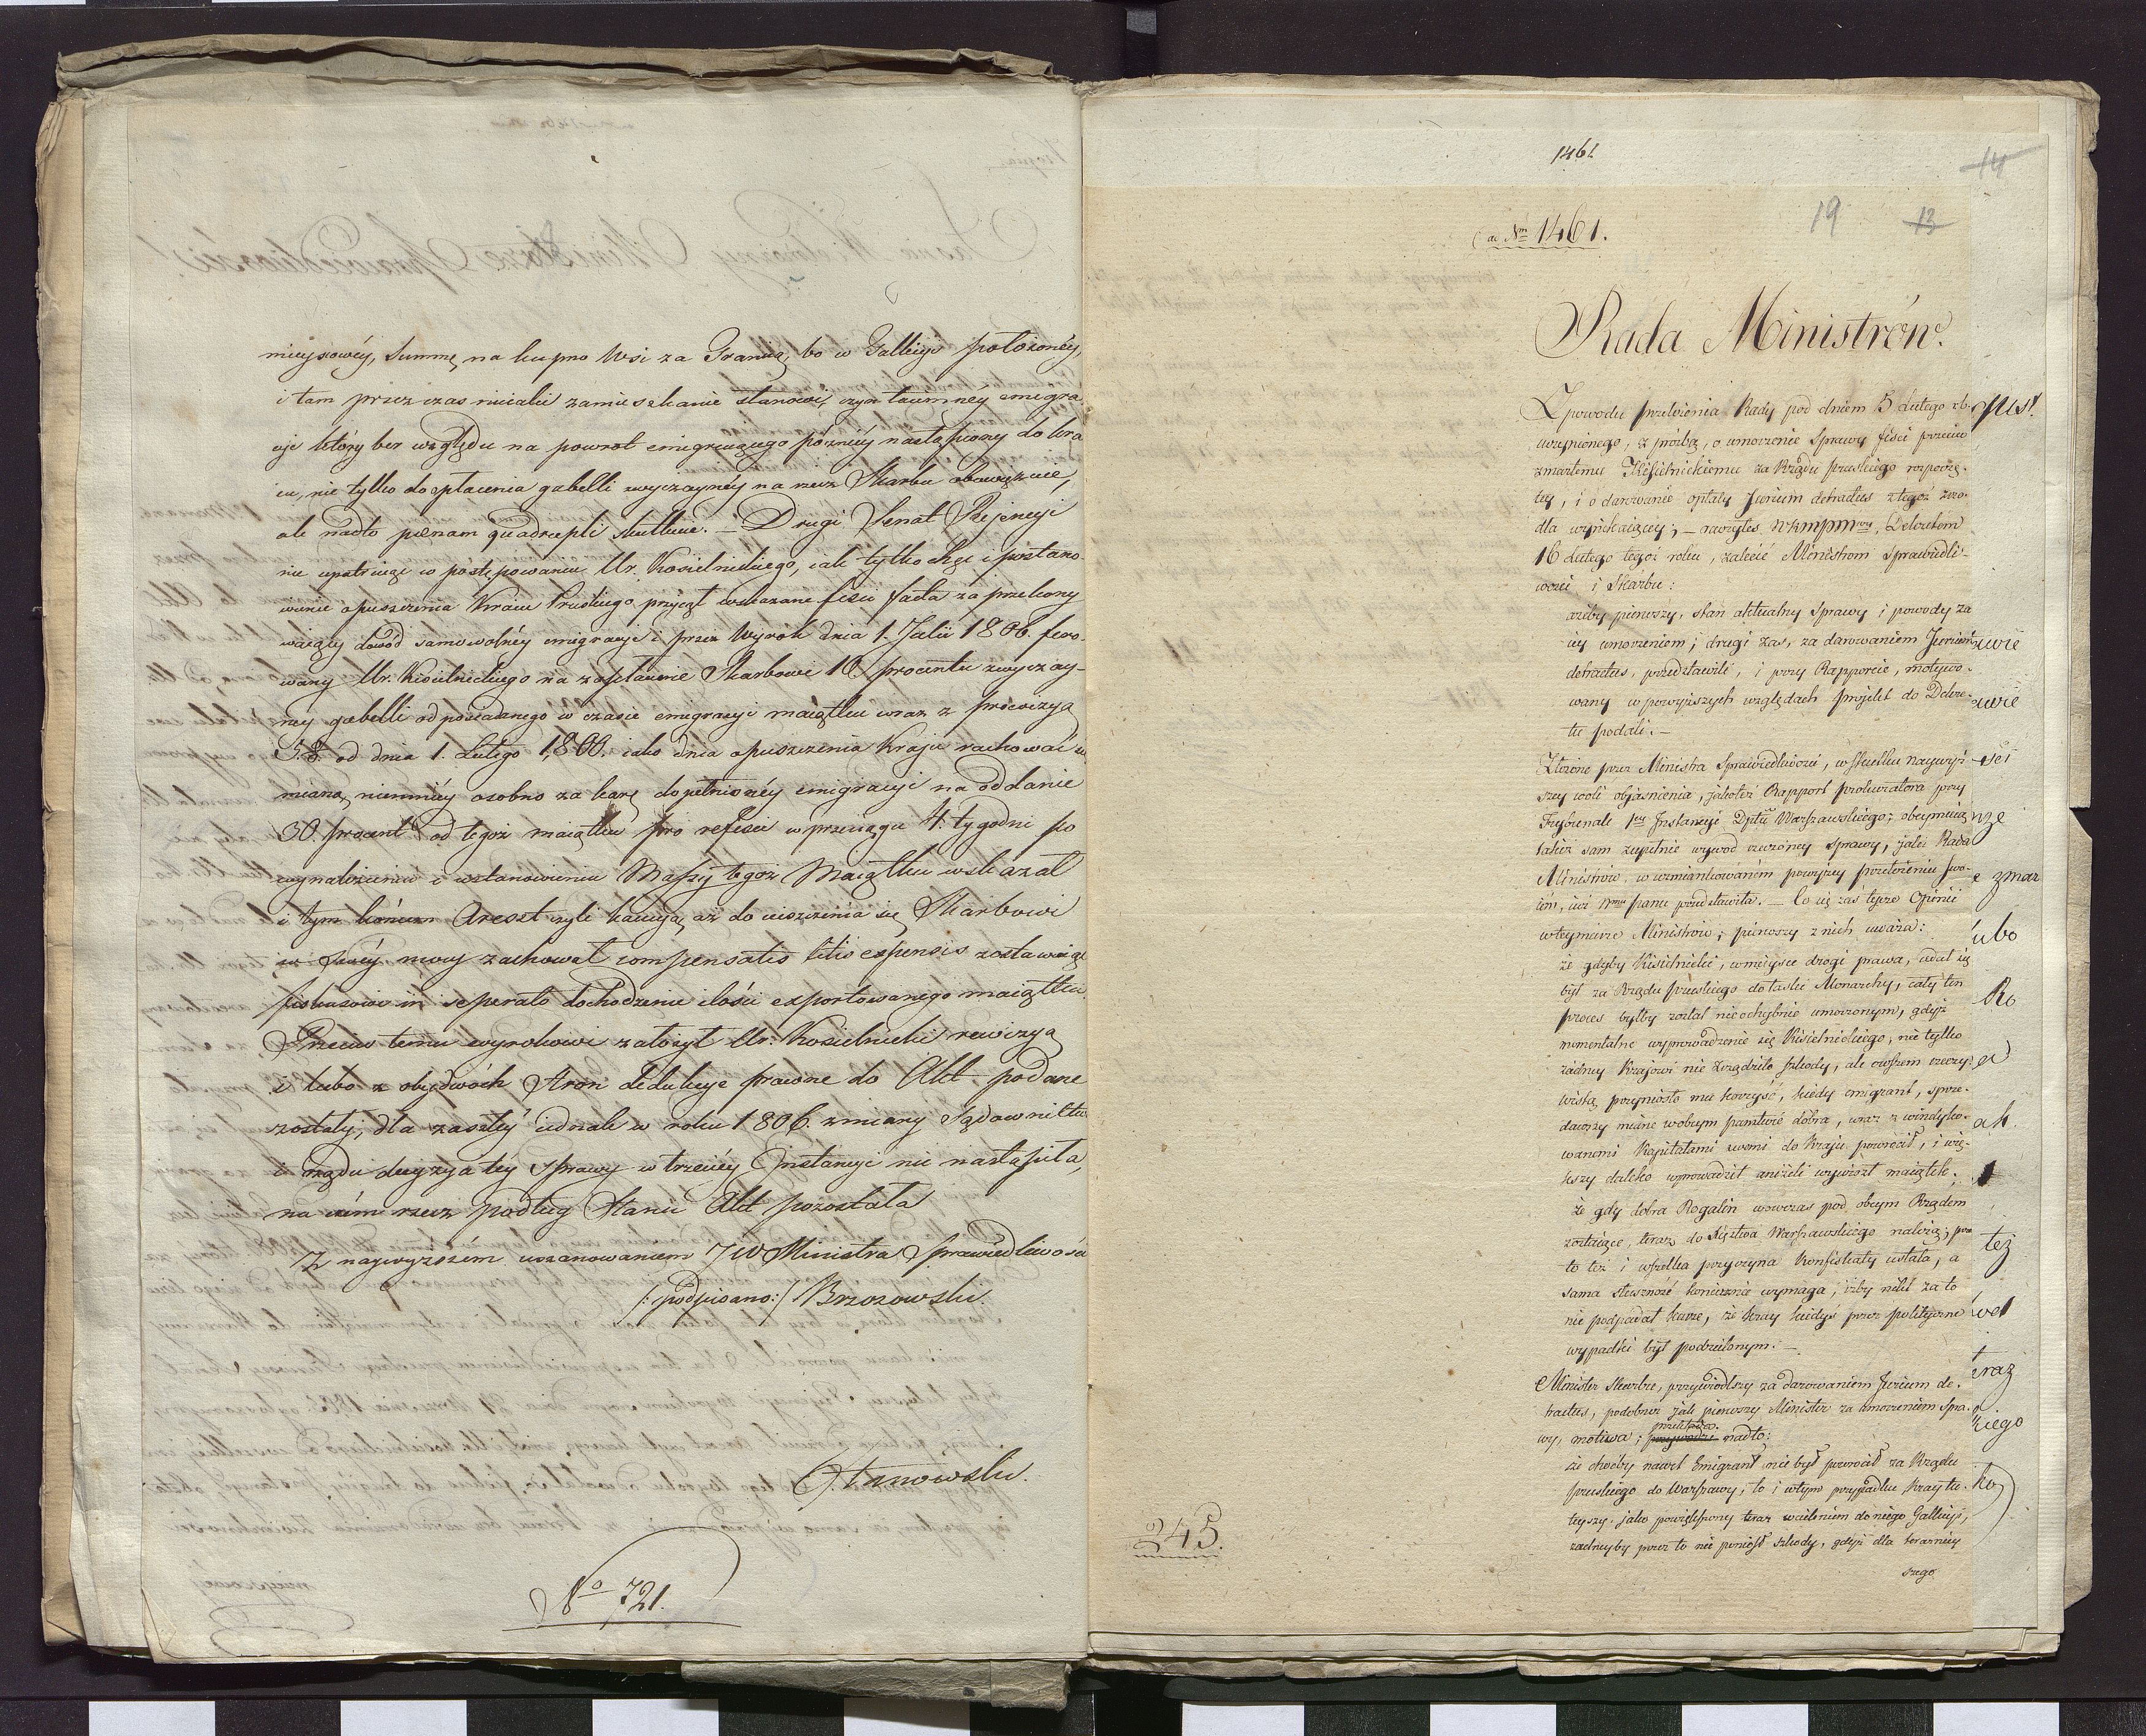 mieyscowéy, Summę na kupno Wsi za Granicą, bo w Gallicyi położonéy,
i tam przez czas niejaki zamieszkanie stanowi, czyn taiemnéy emigra
cyi który bez względu na powrot emigruiącego pózniéy nastąpiony do kra
iu, nie tylko do opłacenia gabelli zwyczaynéy na rzecz Skarbu obowięzuie,
ale nadto pœnam quadrupli skutkuie. — Drugi Senat Rejencyi
nie upatruiąc w postępowaniu Ur. Kosielnickiego, iak tylko chęć i postano
wienie opuszczenia Kraiu Pruskiego przyiął wskazane fisci facta za przekony
waiący dowód samowolnéy emigracyi i przez Wyrok dnia 1. Julii 1806. fero
wany Ur. Kosielnickiego na zapłacenie Skarbowi 10 procentu zwyczay-
néy gabelli od posiadanego w czasie emigracyi maiątku wraz z prowizyą
5.8. od dnia 1. Lutego 1800. iako dnia opuszczenia Kraju rachować się
mianą, niemniéy osobno za karę dopełnionéy emigracyi na oddanie
30. procent od tegoż maiątku pro refisci w przeciągu 4. tygodni po
wynalezieniu i ustanowieniu Massy tegoż Maiątku wskazał
i tym końcem Areszt czyli kaucyą aż do uiszczenia się Skarbowi
w swéy mocy zachował compensatis litis expensis zostawuiąc
fiskusowi in seperato dochodzenie ilości exportowanego maiątku.
Przeciw temu wyrokowi założył Ur. Kosielnicki rewizyą
i lubo z obydwóch Stron dedukcye prawne do Akt podane
zostały, dla zaszłéy iednak w roku 1806. zmiany Sądownictwa
i rządu decyzya téy sprawy w trzeciéy Instancyi nie nastąpiła,
na czém rzecz podług Stanu Akt pozostała
Z naywyższém uszanowaniem JW Ministra Sprawiedliwości
/: podpisano :/ Brzozowski.
Otanowski.
No 721.
1461
14
19 13
(ad Nm 1461.
Rada Ministrów.
Z powodu przełożenia Rady pod dniem 5 Lutego rb.
uczynionego, z prózbą, o umorzenie Sprawy fisci przeciw
zmarłemu Kisielnickiemu za Rządu pruskiego rozpoczę-
tey, i o darowanie opłaty Jurium detractus z tegoż źró-
dła wynikaiącey; — raczyłeś NKMPM Dekretem
16 Lutego tegoż roku, zalecić Ministrom Sprawiedli-
wości i Skarbu:
ażeby pierwszy, stan aktualny Sprawy i powody za
iey umorzeniem; drugi zaś, za darowaniem Jurium
detractus, przedstawili, i przy Rapporcie, motywo-
wany w powyższych względach projekt do Dekre-
tu podali. —
Złożone przez Ministra Sprawiedliwości, w skutku naywyż-
szey woli objaśnienia, jakoteż Rapport prokuratora przy
Trybunale 1ey Instancyi Dpttu Warszawskiego; obeymuią
takiż sam zupełnie wywod rzeczoney Sprawy, jaki Rada
Ministrów, w wzmiankowaném powyżey przełożeniu swo-
iém, iuż Nmu Panu przedstawiła. — Co się zaś tycze Opinii
w téymierze Ministrów; pierwszy z nich uważa:
że gdyby Kisielnicki, w mieysce drogi prawa, udał się
był za Rządu pruskiego do łaski Monarchy, cały ten
proces byłby został nieochybnie umorzonym, gdyż
momentalne wyprowadzenie się Kisielnickiego, nie tylko
żadney Krajowi nie zrządziło szkody, ale owszem rzeczy-
wistą przyniosło mu korzyść, kiedy emigrant, sprze-
dawszy miane w obcym państwie dobra, wraz z windyko-
wanemi Kapitałami swemi do kraju powrócił, i więk-
szy daleko wprowadził aniżeli wywiozł maiątek;
że gdy dobra Rogalin wowczas pod obcym Rządem
zostaiące, teraz do Xięztwa Warszawskiego należą; prze
to też i wszelka przyczyna Konfiskaty ustała, a
sama słuszność koniecznie wymaga, iżby nikt za to
nie podpadał karze, że Kray kiedyś przez polityczne
wypadki był podzielonym. —
Minister Skarbu, przywiodłszy za darowaniem Jurium de-
tractus, podobneż jak pierwszy Minister za umorzeniem Spra-
wy, motiwa; przekłada nadto:
że choćby nawet Emigrant nie był powrócił za Rządu
pruskiego do Warszawy, to i w tym przypadku Kray tu-
teyszy, jako powiększony teraz wcieleniem do niego Gallicyi,
żadneyby przez to nie poniósł szkody, gdyż dla teraźniey
szego
245.
just.
zwie
zwie
ści
nze
e zmar
ubo
Ko
ed
ak
też
wet
teraz
kiego
ko